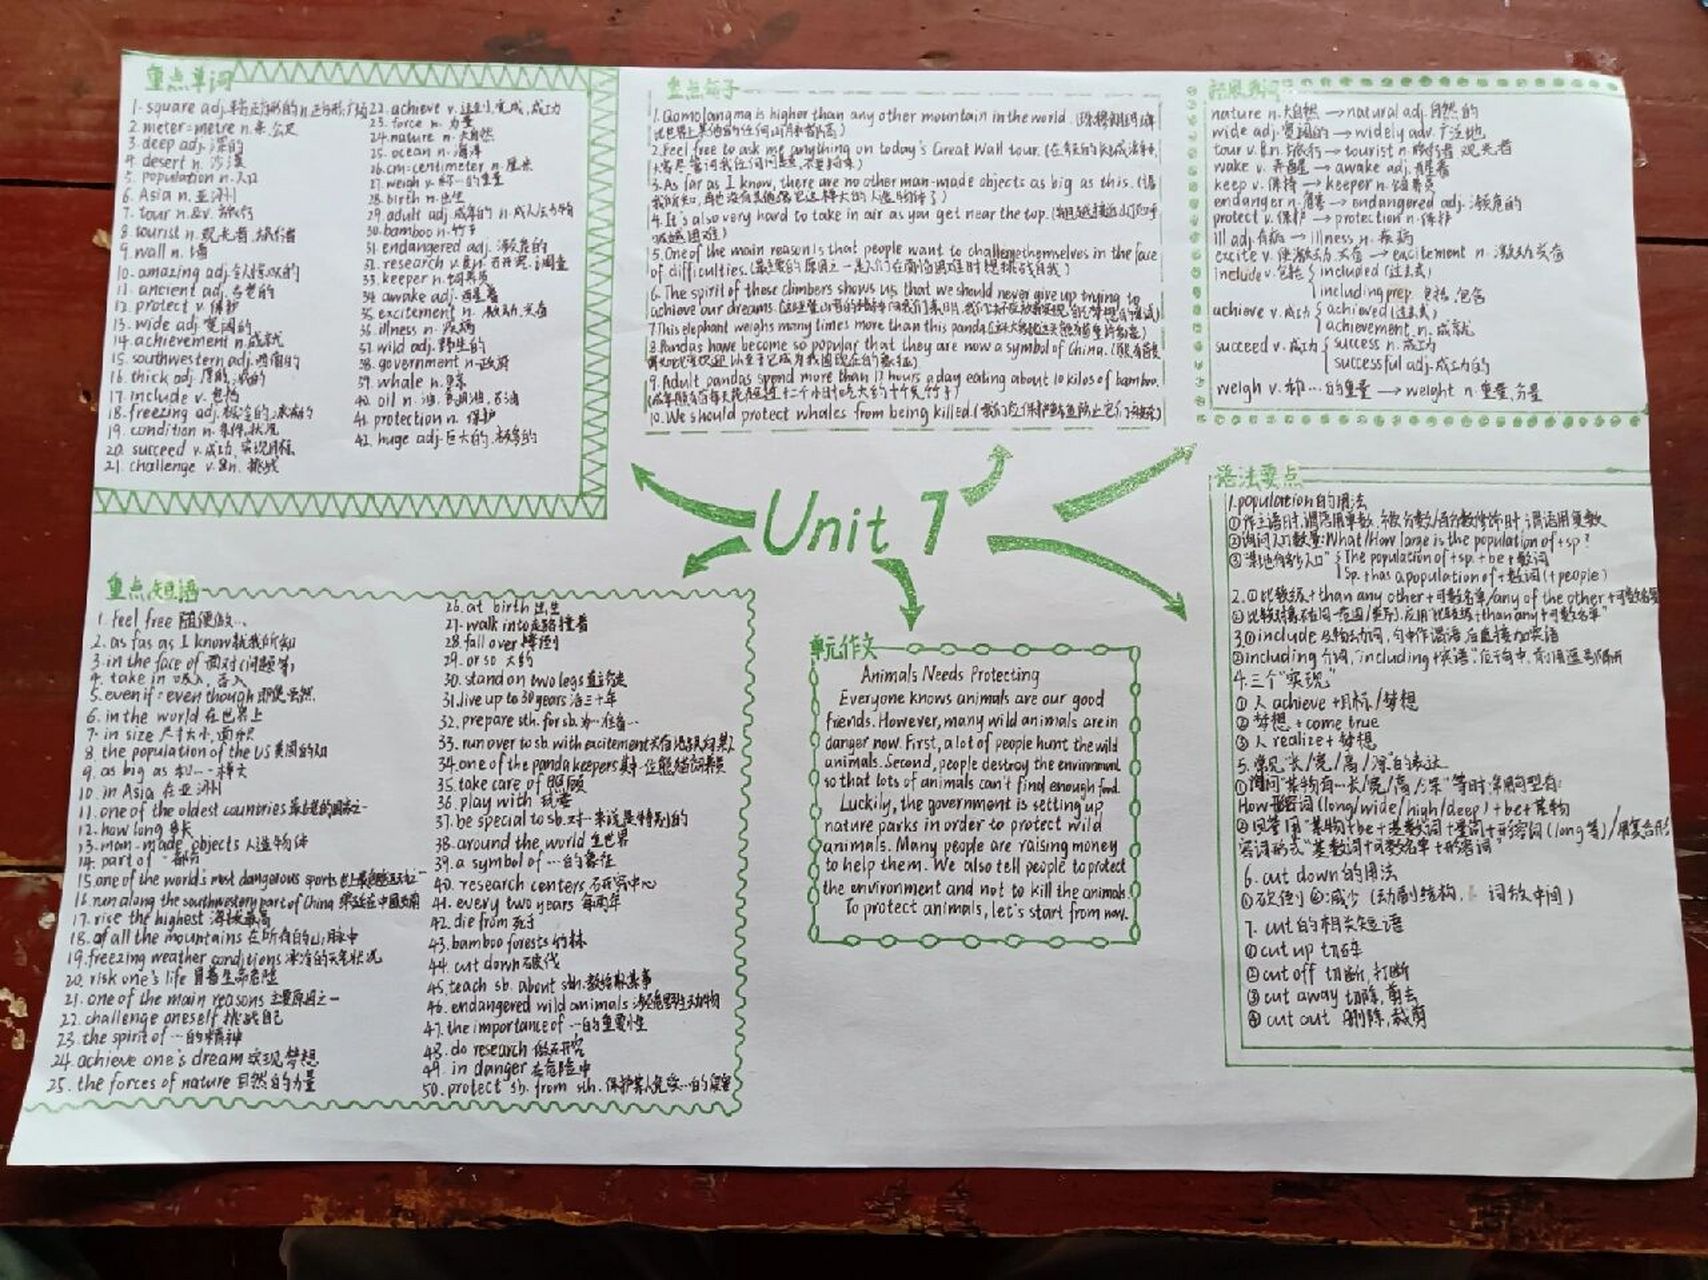 重点单词
1. square adj.平方的 正方形的 n.正方形,广场
2. meter=metre n.米,公尺
3. deep adj.深的
4. desert n.沙漠
5. population n.人口
6. Asia n.亚洲
7. tour n.&v.旅行
8. tourist n.观光者,旅行者
9. wall n.墙
10. amazing adj.令人惊叹的
11. ancient adj.古老的
12. protect v.保护
13. wide adj.宽阔的
14. achievement n.成就
15. southwestern adj.西南的
16. thick adj.厚的,浓的
17. include v.包括
18. freezing adj.极冷的,冰冻的
19. condition n.条件,状况
20. succeed v.成功,实现目标
21. challenge v.&n.挑战
22. achieve v.达到,完成,成功
23. force n.力量
24. nature n.大自然
25. ocean n.海洋
26. cm=centimeter n.厘米
27. weigh v.称…的重量
28. birth n.出生
29. adult adj.成年的 n.成人/动物
30. bamboo n.竹子
31. endangered adj.濒危的
32. research v.&n.研究,调查
33. keeper n.饲养员
34. awake adj.醒着
35. excitement n.激动,兴奋
36. illness n.疾病
37. wild adj.野生的
38. government n.政府
39. whale n.鲸
40. oil n.油,食用油,石油
41. protection n.保护
42. huge adj.巨大的,极多的
重点句子
1. Qomolangma is higher than any other mountain in the world.
2. Feel free to ask me anything on today's Great Wall tour.
3. As far as I know, there are no other man-made objects as big as this.
4. It's also very hard to take in air as you get near the top.
5. One of the main reason is that people want to challenge themselves in the face
of difficulties.
6. The spirit of these climbers shows us that we should never give up trying to
achieve our dreams.
7. This elephant weighs many times more than this panda.
8. Pandas have become so popular that they are now a symbol of China.
9. Adult pandas spend more than 12 hours a day eating about 10 kilos of bamboo.
10. We should protect whales from being killed.
nature n.大自然 → natural adj.自然的
wide adj.宽阔的 → widely adv.广泛地
tour v.&n.旅行 → tourist n.旅行者 观光者
wake v.弄醒 → awake adj.醒着
keep v.保持 → keeper n.饲养员
endanger n.危害 → endangered adj.濒危的
protect v.保护 → protection n.保护
ill adj.有病 → illness n.疾病
excite v.使激动,兴奋 → excitement n.激动,兴奋
include v.包括 { included (过去式)
including prep.包括,包含
achieve v.成功 { achieved (过去式)
achievement n.成就
succeed v.成功 { success n.成功
successful adj.成功的
weigh v.称…的重量 → weight n.重量,分量
Unit 7
语法要点
1. population的用法
①作主语时,谓语用单数,被分数/百分数修饰时,谓语用复数
②询问人口数量: What/How large is the population of+sp?
③"某地有多少人口" { The population of+sp.+be+数词
Sp.+has a population of+数词(+people)
2.①比较级+than any other+可数名单/any of the other+可数名复
3.①include 及物动词,句中作谓语,后直接加宾语
②including 介词,"including+宾语"位于句中,前用逗号隔开
4.三个"实现"
①人 achieve+目标/梦想
②梦想+come true
③人 realize+梦想
5.常见"长/宽/高/深"的表达
①询问"某物有…长/宽/高/深"等时,常用句型有:
How+形容词(long/wide/high/deep)+be+某物
②回答用"某物+be+基数词+量词+形容词(long等)/用复合形
容词形式"基数词+可数名单+形容词"
6. cut down的用法
①砍倒②减少 (动副结构, 词放中间)
7. cut的相关短语
①cut up 切碎
②cut off 切断,打断
③cut away 切除,剪去
④cut out 删除,裁剪
重点短语
1. feel free 随便做…
2. as far as I know就我所知
3. in the face of 面对(问题等)
4. take in 吸入,吞入
5. even if=even though 即使,虽然
6. in the world 在世界上
7. in size 尺寸大小,面积
8. the population of the US 美国的人口
9. as big as 和…一样大
10. in Asia 在亚洲
11. one of the oldest countries 最古老的国家之一
12. how long 多长
13. man-made objects 人造物体
14. part of 一部分
15. one of the world's most dangerous sports
16. run along the southwestern part of China
17. rise the highest 海拔最高
18. of all the mountains 在所有的山脉中
19. freezing weather conditions 冰冷的天气状况
20. risk one's life 冒着生命危险
21. one of the main reasons 主要原因之一
22. challenge oneself 挑战自己
23. the spirit of …的精神
24. achieve one's dream 实现梦想
25. the forces of nature 自然的力量
26. at birth 出生
27. walk into走路撞着
28. fall over 摔倒
29. or so 大约
30. stand on two legs 直立行走
31. live up to 30 years 活三十年
32. prepare sth. for sb. 为…准备…
33. run over to sb. with excitement兴奋地跑向某人
34. one of the panda keepers其中一位熊猫饲养员
35. take care of 照顾
36. play with 玩耍
37. be special to sb.对…来说是特别的
38. around the world 全世界
39. a symbol of …的象征
40. research centers 研究中心
41. every two years 每两年
42. die from 死于
43. bamboo forests 竹林
44. cut down 砍伐
45. teach sb. about sth.教给某人某事
46. endangered wild animals 濒危野生动物
47. the importance of …的重要性
48. do research 做研究
49. in danger 在危险中
50. protect sb. from sth.保护某人免受…的侵害
单元作文
Animals Needs Protecting
Everyone knows animals are our good
friends. However, many wild animals are in
danger now. First, a lot of people hunt the wild
animals. Second, people destroy the environment
so that lots of animals can't find enough food.
Luckily, the government is setting up
nature parks in order to protect wild
animals. Many people are raising money
to help them. We also tell people to protect
the environment and not to kill the animals.
To protect animals, let's start from now.